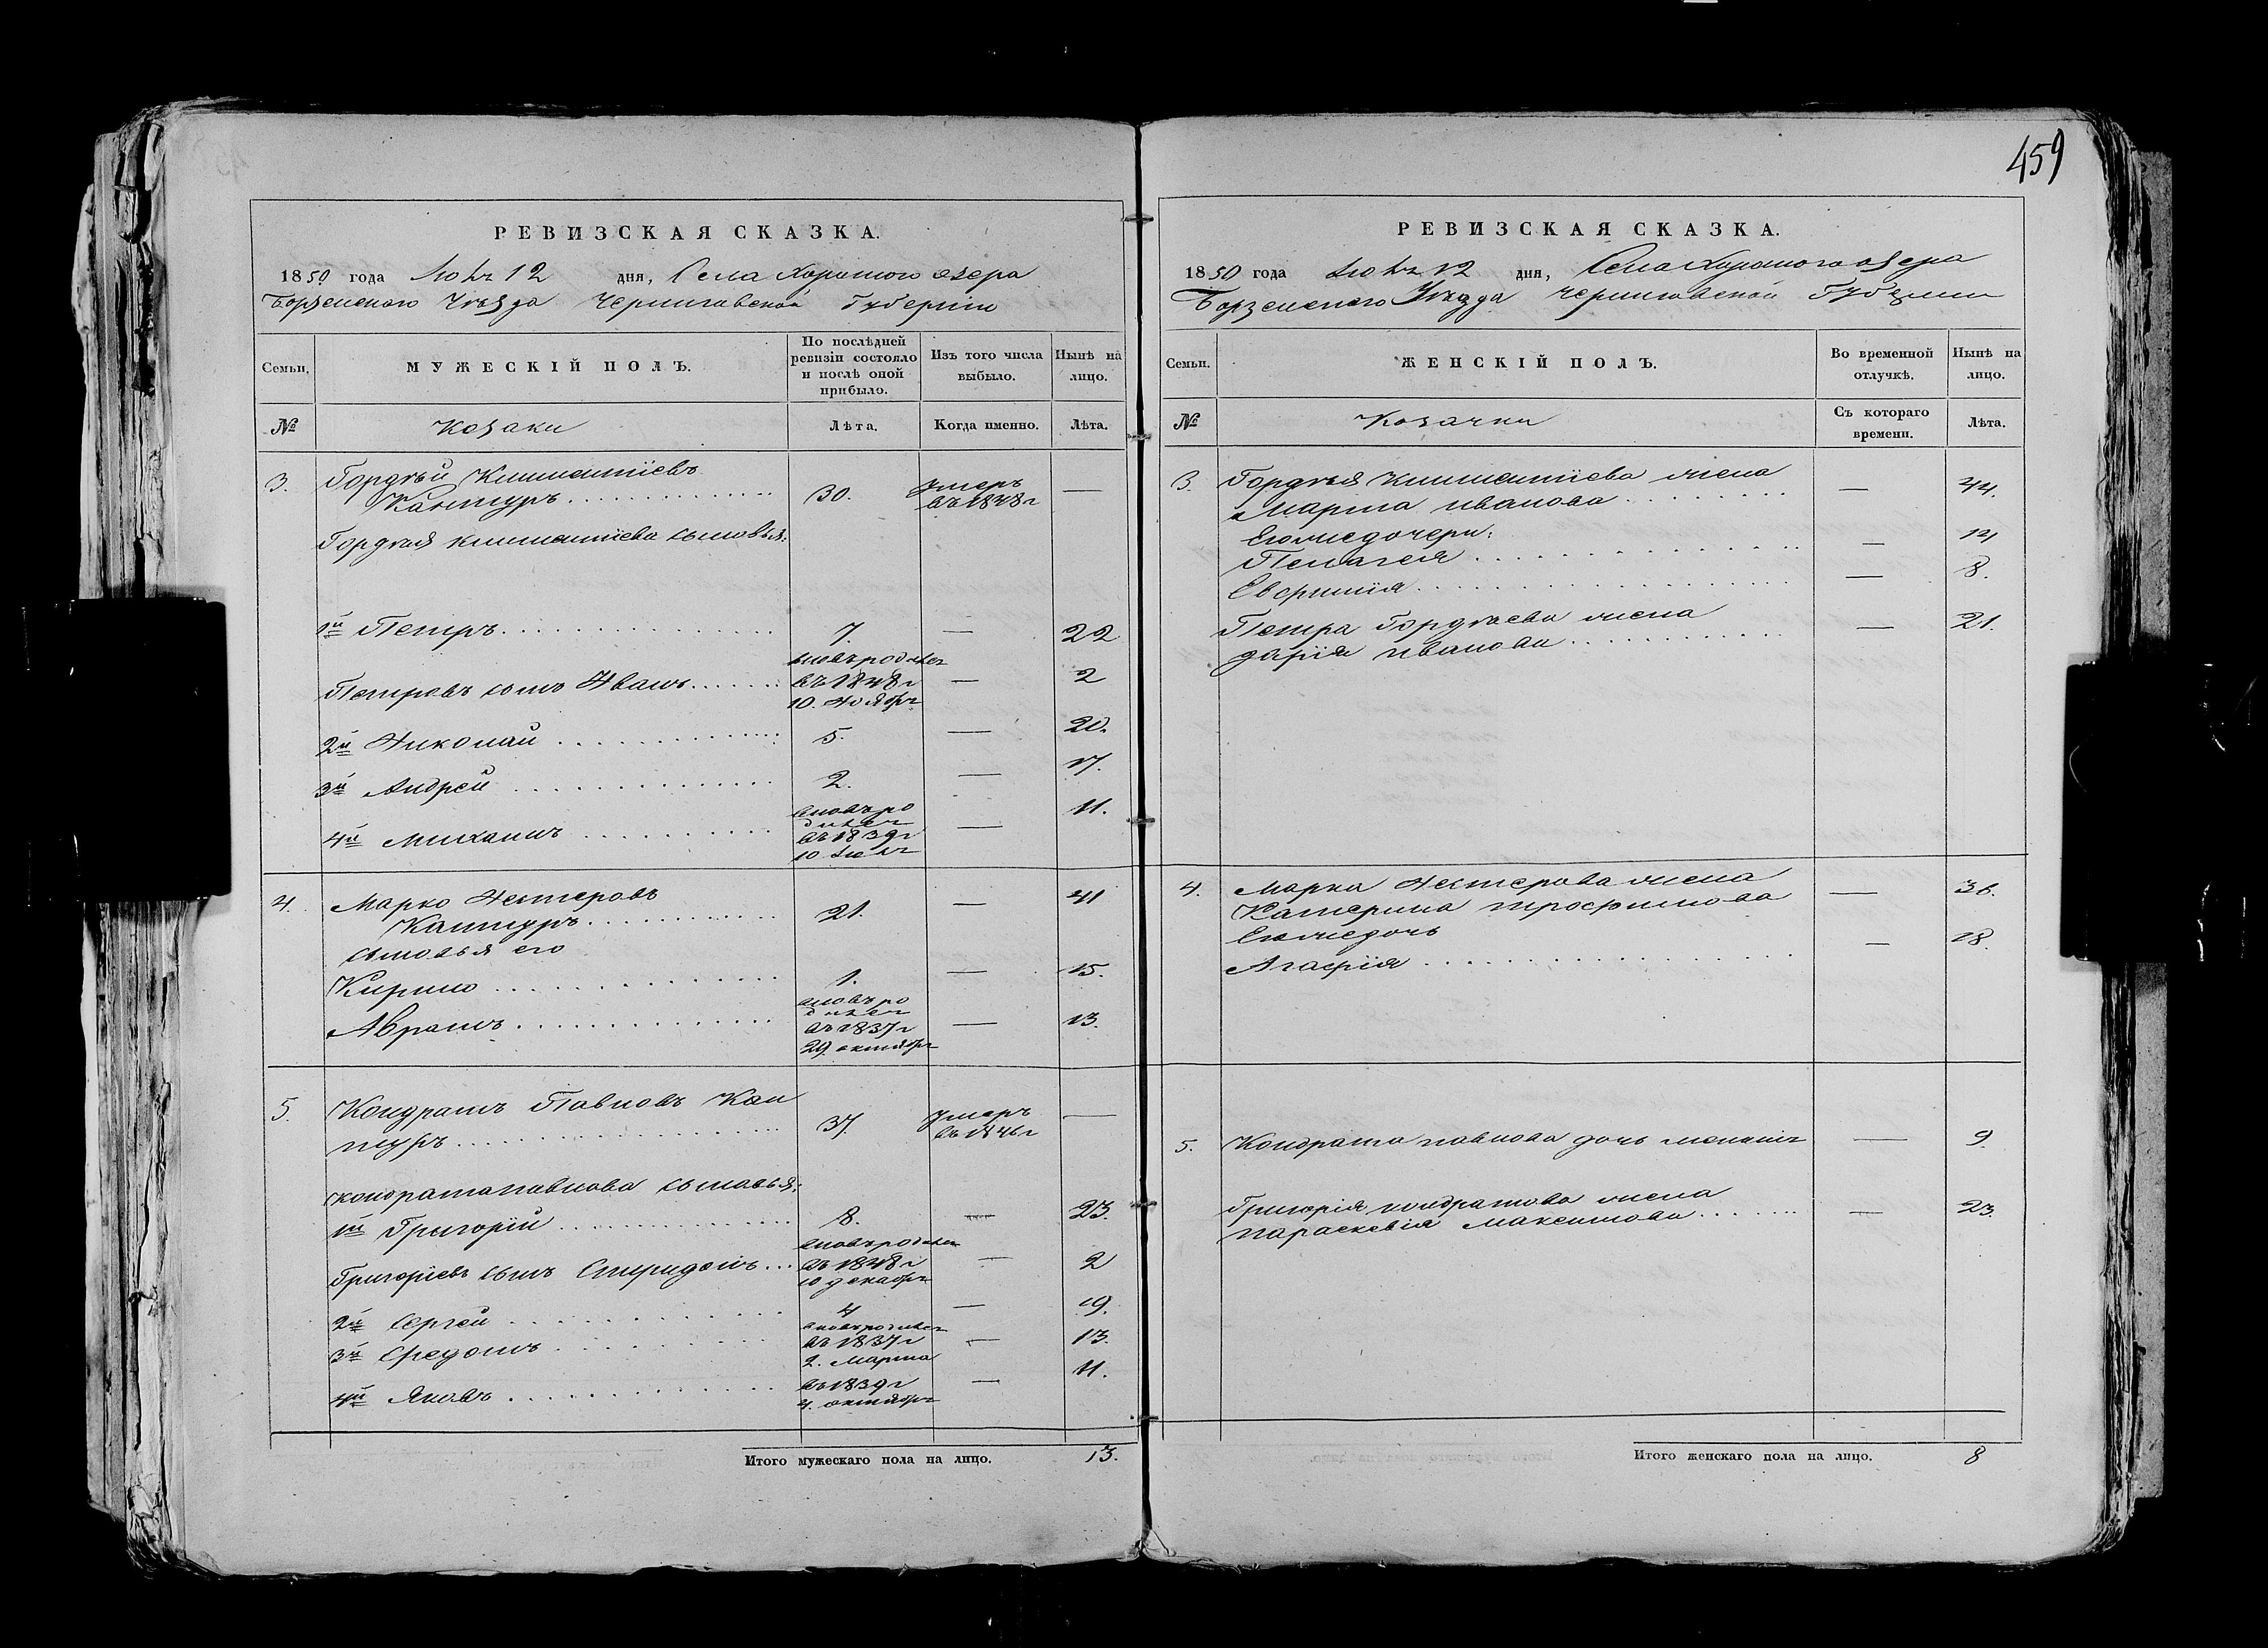 459
РЕВИЗСКАЯ СКАЗКА.
1850 года Июля 12 дня, Села Хорошого озера
Борзенского Уѣзда Черниговской Губерніи
Семьи,
МУЖЕСКІЙ ПОЛЪ.
По послѣдней ревизіи состояло и послѣ оной прибыло.
Изъ того числа выбыло.
Нынѣ на лицо.
№
Козаки
Лѣта.
Когда именно.
Лѣта.
3. Гордѣй Климентіевъ
Кантуръ 30. Умеръ въ 1848 г —
Гордѣя климентіева сыновья:
1й Петръ 7. — 22
Петровъ сынъ Иванъ вновь родился въ 1848 г 10. Ноября — 2
2й Николай 5. — 20.
3й Андрей 2. — 17.
4й Михаилъ вновь родился въ 1839 г 10 Июля — 11.
4. Марко Нестеровъ
Кантуръ 21. — 41
сыновья его
Кирило 1. — 15.
Аврамъ вновь родился въ 1837 г 29. октября — 13.
5. Кондратъ Павловъ Кан
туръ 37. Умеръ въ 1846 г —
кондрата павлова сыновья:
1й Григорій 8. — 23.
Григоріевъ сынъ Спиридонъ вновь родился въ 1848 г 10 декабря — 2
2й Сергей 4 — 19.
3й Федотъ вновь родился въ 1837 г 2. Марта — 13.
4й Яковъ въ 1839 г 4. октября — 11.
Итого мужескаго пола на лицо. 13.
РЕВИЗСКАЯ СКАЗКА.
1850 года Июля 12 дня, Села Хорошого озера
Борзенского Уѣзда Черниговской Губерніи
Семьи.
ЖЕНСКІЙ ПОЛЪ.
Во временной отлучкѣ.
Нынѣ на лицо.
№
Козачки
Съ котораго времени.
Лѣта.
3. Гордѣя Климентіева жена
Марта иванова — 44.
Его же дочери:
Пелагея —
Евфимія — 8.
Петра Гордѣева жена
дарія иванова — 21.
4. Марка Нестерова жена
Катерина трофимова — 36.
Его же дочь
Агафія — 18.
5. Кондрата павлова дочь — 9
Григорія кондратова жена
параскевія Максимова — 23.
Итого женскаго пола на лицо. 8